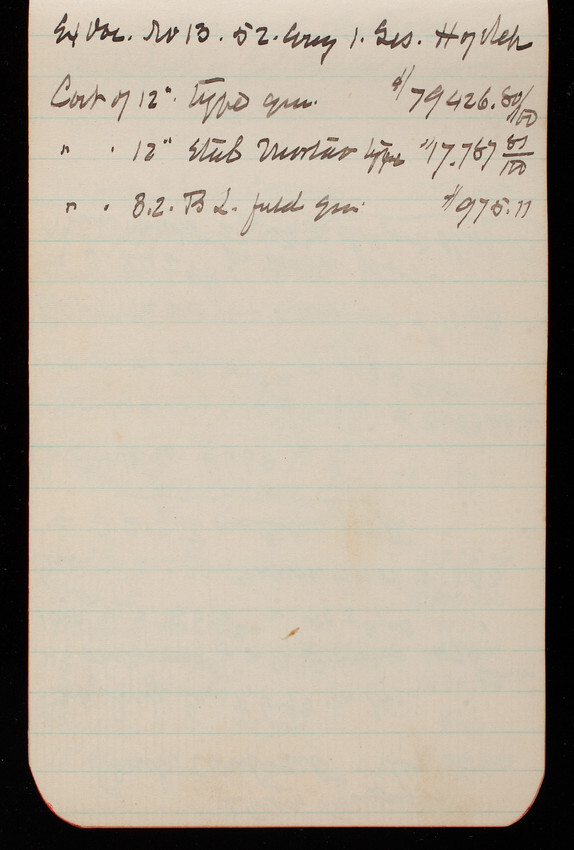 Ex Doc. No 13. 52. Cong 1. Ses. H of Reps
Cost of 12". type gun. $79426.80/100
" . 12" steel Mortar type $17.767 81/100
" . 3.2. B L. field gun $975.11